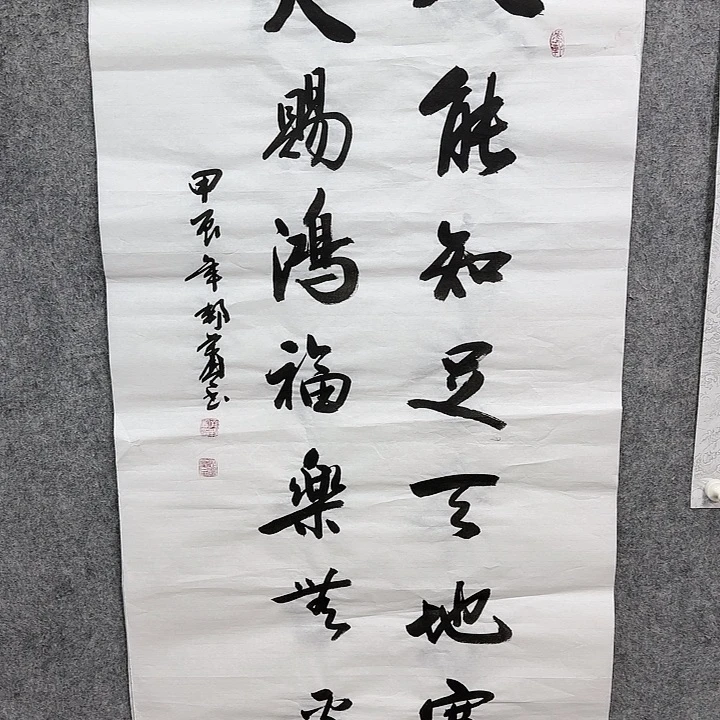 人能知足天地寬
天賜鴻福樂無
甲辰年